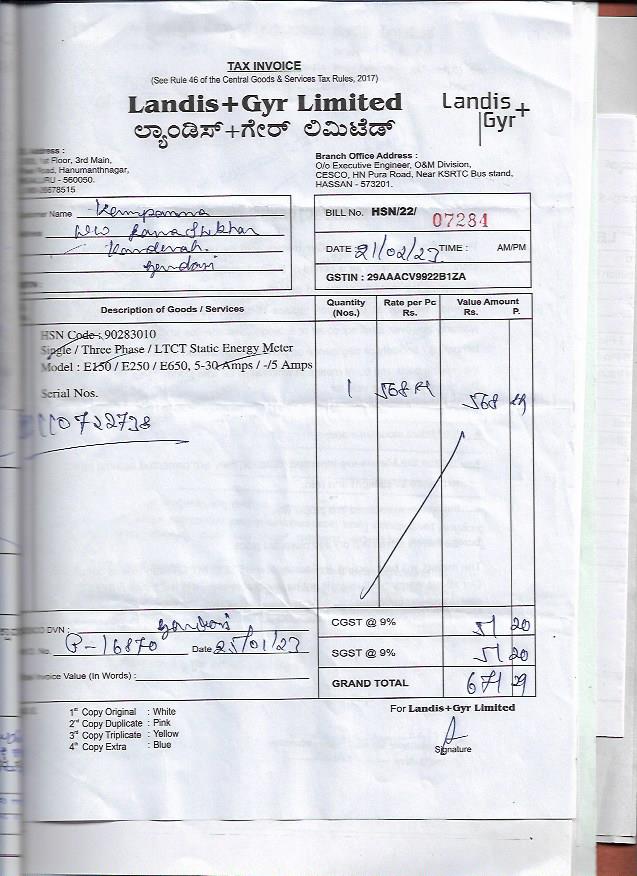 TAX INVOICE
(See Rule 46 of the Central Goods & Services Tax Rules, 2017)
Landis+Gyr Limited
ಲ್ಯಾಂಡಿಸ್+ಗೇರ್ ಲಿಮಿಟೆಡ್
Landis+
Gyr
Address :
Floor, 3rd Main,
Road, Hanumanthnagar,
- 560050.
26678515
Branch Office Address :
O/o Executive Engineer, O&M Division,
CESCO, HN Pura Road, Near KSRTC Bus stand,
HASSAN - 573201.
Name Kempamma
W/o
BILL No. HSN/22/ 07284
DATE 21/02/23 TIME : AM/PM
GSTIN : 29AAACV9922B1ZA
Description of Goods / Services
Quantity
(Nos.)
Rate per Pc
Rs.
Value Amount
Rs. P.
HSN Code : 90283010
Single / Three Phase / LTCT Static Energy Meter
Model : E150 / E250 / E650, 5-30 Amps / -/5 Amps
Serial Nos.
1 568 568
0722738
DVN :
CGST @ 9% 51 20
No. B-16870 Date 25/01/23
SGST @ 9% 51 20
Invoice Value (In Words) :
GRAND TOTAL 671 29
1st Copy Original : White
2nd Copy Duplicate : Pink
3rd Copy Triplicate : Yellow
4th Copy Extra : Blue
For Landis+Gyr Limited
Signature